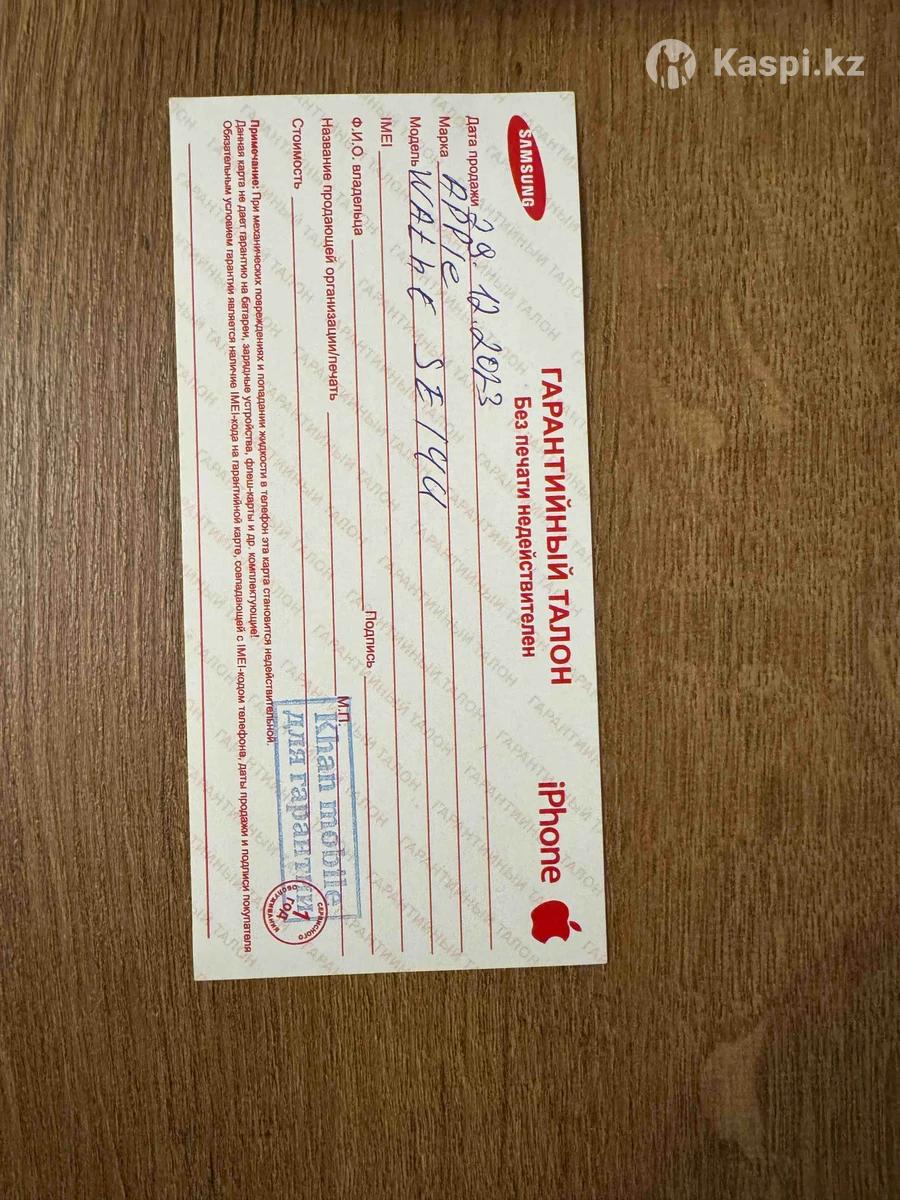 Kaspi.kz
SAMSUNG
ГАРАНТИЙНЫЙ ТАЛОН
Без печати недействителен
iPhone
Дата продажи 29.12.2023
Марка Apple
Модель WAthe SE144
IMEI
Ф.И.О. владельца Подпись
Название продающей организации/печать М.П.
Стоимость
Khan mobile
для гарантии
1 год
сервисного
обслуживания
Примечание: При механических повреждениях и попадании жидкости в телефон эта карта становится недействительной.
Данная карта не дает гарантию на батареи, зарядные устройства, флеш-карты и др. комплектующие!
Обязательным условием гарантии является наличие IMEI-кода на гарантийной карте, совпадающей с IMEI-кодом телефона, даты продажи и подписи покупателя